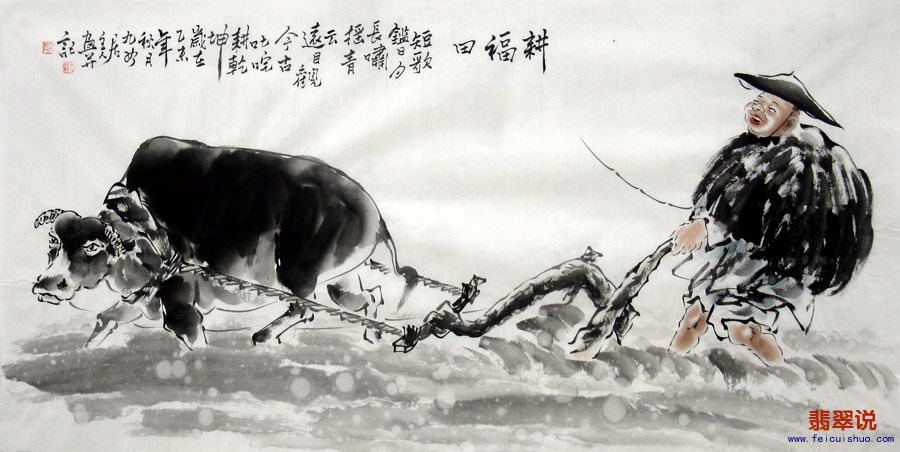 耕福田
短歌
鑑日月
長嘯
搖青
云
遠目觀
今古
叱咤
耕乾
坤
歲在
乙未
年
秋月
居
畫并
記
翡翠说
www.feicuishuo.com